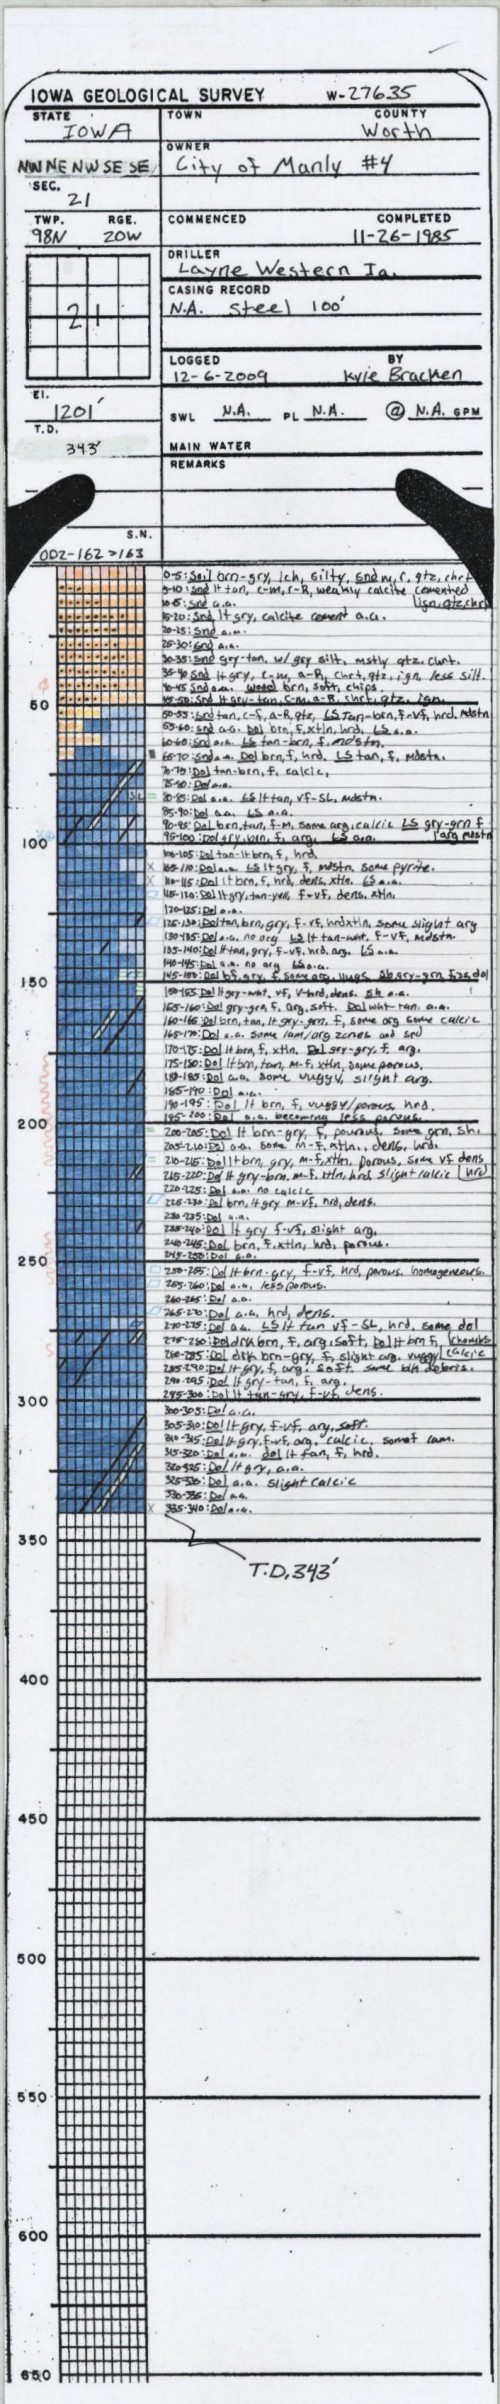 IOWA GEOLOGICAL SURVEY W-27635
STATE TOWN COUNTY
IOWA Worth
OWNER
NW NE NW SE SE City of Manly #4
SEC.
21
TWP. RGE. COMMENCED COMPLETED
98N 20W 11-26-1985
DRILLER
Layne Western Ia.
CASING RECORD
21 N.A. steel 100'
LOGGED BY
12-6-2009 Kyle Bracken
El.
1201' SWL N.A. PL N.A. @ N.A. GPM
T.D.
343' MAIN WATER
REMARKS
S.N.
002-162>163
0-5: Soil brn-gry, lch, silty, snd m, r, qtz, chrt
5-10: Snd lt tan, c-m, r-R, weakly calcite cemented
lign, qtz, chrt
10-15: Snd a.a.
15-20: Snd lt gry, calcite cement a.a.
20-25: Snd a.a.
25-30: Snd a.a.
30-35: Snd gry-tan, w/ gry silt, mstly qtz, chrt.
35-40 Snd lt gry, c-m, a-R, chrt, qtz, ign, less silt.
40-45 Snd a.a. wood brn, soft, chips.
45-50: Snd lt gry-tan, c-m, a-R, chrt, qtz, ign
50
50-55: Snd tan, c-f, a-R, qtz, LS Tan-brn, f-vf, hrd, mdstn
55-60: Snd a.a. Dol brn, f, xtln, hrd, LS a.a.
60-65: Snd a.a. LS tan-brn, f mdstn.
65-70: Snd a.a. Dol brn, f, hrd, LS tan, f, mdstn.
70-75: Dol tan-brn, f, calcic,
75-80: Dol a.a.
SL
80-85: Dol a.a. LS lt tan, vf-SL, mdstn.
85-90: Dol a.a. LS a.a.
90-95: Dol brn, tan, f-m, some arg, calcic LS gry-grn f
arg mdstn
95-100: Dol gry, brn, f, arg, LS a.a.
100
100-105: Dol tan-lt brn, f, hrd.
105-110: Dol a.a. LS lt gry, f, mdstn, some pyrite.
110-115: Dol lt brn, f, hrd, dens, xtln. LS a.a.
115-120: Dol lt gry, tan-yell, f-vf, dens, xtln.
120-125: Dol a.a.
125-130: Dol tan, brn, gry, f-vf, hrd xtln, some slight arg
130-135: Dol a.a. no arg LS lt tan-wht, f-vf, mdstn.
135-140: Dol lt tan, gry, f-vf, hrd, arg, LS a.a.
140-145: Dol a.a. no arg LS a.a.
145-150: Dol bf, gry, f, some arg, vugs, Sh gry-grn
150
150-155: Dol lt gry-wht, vf, v-hrd, dens. Sh a.a.
155-160: Dol gry-grn, f, arg, soft. Dol wht-tan. a.a.
160-165: Dol brn, tan, lt gry-grn, f, some arg some calcic
165-170: Dol a.a. some lam/arg zones and snd
170-175: Dol lt brn, f, xtln. Dol gry-gry, f, arg.
175-180: Dol lt brn, tan, m-f, xtln, some porous.
180-185: Dol a.a. some vuggy, slight arg.
185-190: Dol a.a.
190-195: Dol lt brn, f, vuggy/porous, hrd.
195-200: Dol a.a. becoming less porous.
200
200-205: Dol lt brn-gry, f, pourous, some grn, sh.
205-210: Dol a.a. some m-f, xtln., dens, hrd.
210-215: Dol lt brn, gry, m-f, xtln, porous, some vf dens
hrd
215-220: Dol lt gry-brn, m-f, xtln, hrd, slight calcic
220-225: Dol a.a. no calcic
225-230: Dol brn, lt gry m-vf, hrd, dens.
230-235: Dol a.a.
235-240: Dol lt gry f-vf, slight arg.
240-245: Dol brn, f, xtln, hrd, porous.
245-250: Dol a.a.
250
250-255: Dol lt brn-gry, f-vf, hrd, porous. homogeneous.
255-260: Dol a.a. less porous.
260-265: Dol a.a.
265-270: Dol a.a. hrd, dens.
270-275: Dol a.a. LS lt tan vf-SL, hrd, some dol
rhombs
275-280: Dol drk brn, f, arg, soft, Dol lt brn f,
calcic
280-285: Dol drk brn-gry, f, slight arg, vuggy
285-290: Dol lt gry, f, arg. soft. some blk debris.
290-295: Dol lt gry-tan, f, arg.
295-300: Dol lt tan-gry, f-vf, dens.
300
300-305: Dol a.a.
305-310: Dol lt gry, f-vf, arg, soft.
310-315: Dol lt gry, f-vf, arg, calcic, some lam.
315-320: Dol a.a. dol lt tan, f, hrd.
320-325: Dol lt gry, a.a.
325-330: Dol a.a. slight calcic
330-335: Dol a.a.
335-340: Dol a.a.
350
T.D. 343'
400
450
500
550
600
650